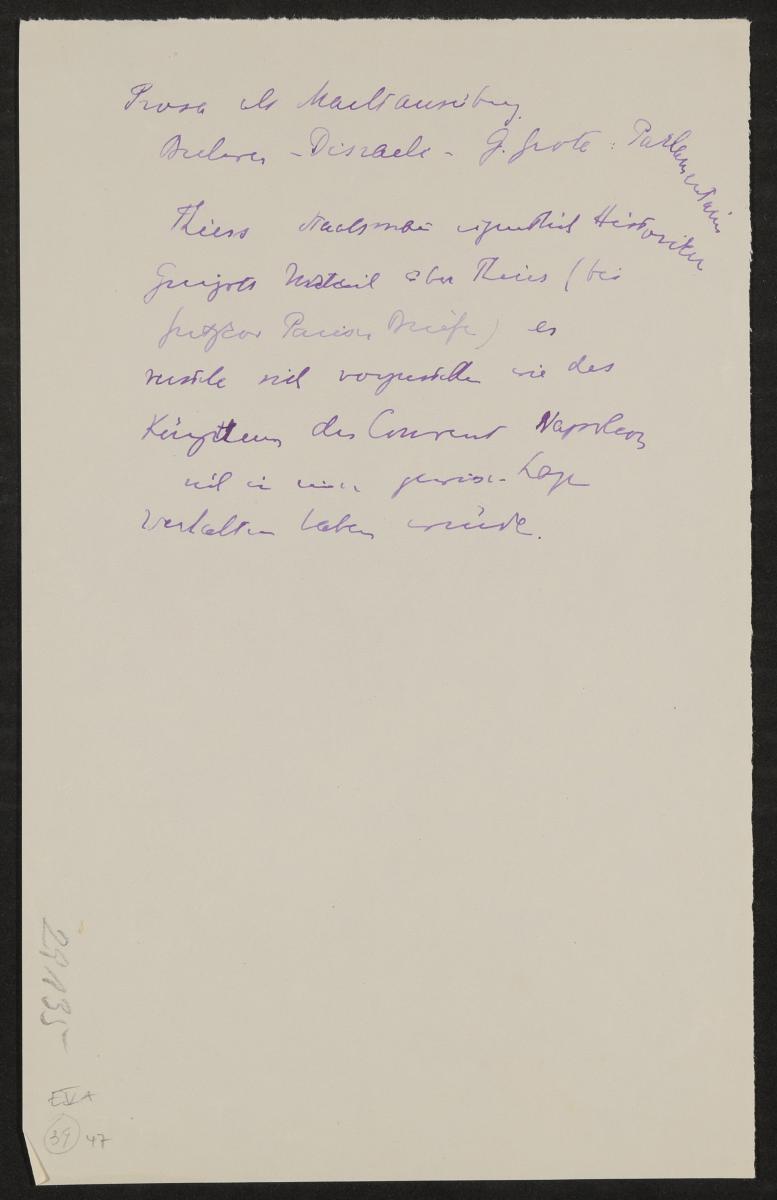 Prosa als Machtausübung
Bulwer – Disraeli – G. Grote : Parlamentarier
Thiers Nachmai eigentlich Historiker
Guizots Urteil über Thiers (bei
Gutzkow Pariser Briefe) er
wusste sich vorzustellen wie das
des Convent Napoleon
sich in einer gewissen Lage
verhalten haben würde.
29135
EVA
39 47